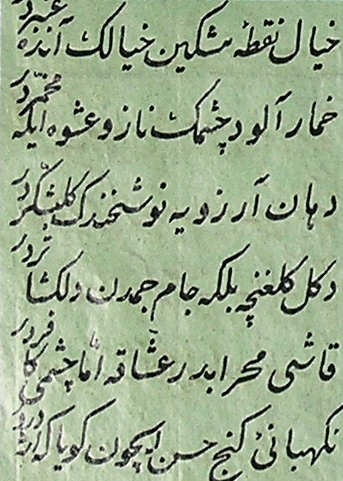 خیال نقطهٔ مشكین خیالك آنده عنبردر
خمار آلود چشمك ناز و عشوه ایله مخمّردر
دهان آرزویه نوشخندك كلبشكّردر
دكل كلغنچه بلكه جام جمدن دلكشا تردر
قاشی محرابدر عشّاقه امّا چشمی كافردر
نكهبانئ كنج حسن ایچون كویا كه اژدردر